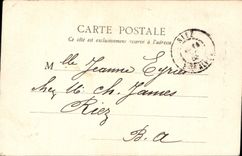 CARTE POSTALE
Ce côté est exclusivement réservé à l'adresse
Mlle Jeanne Eyriès
chez M. Ch. James
Riez
B. A